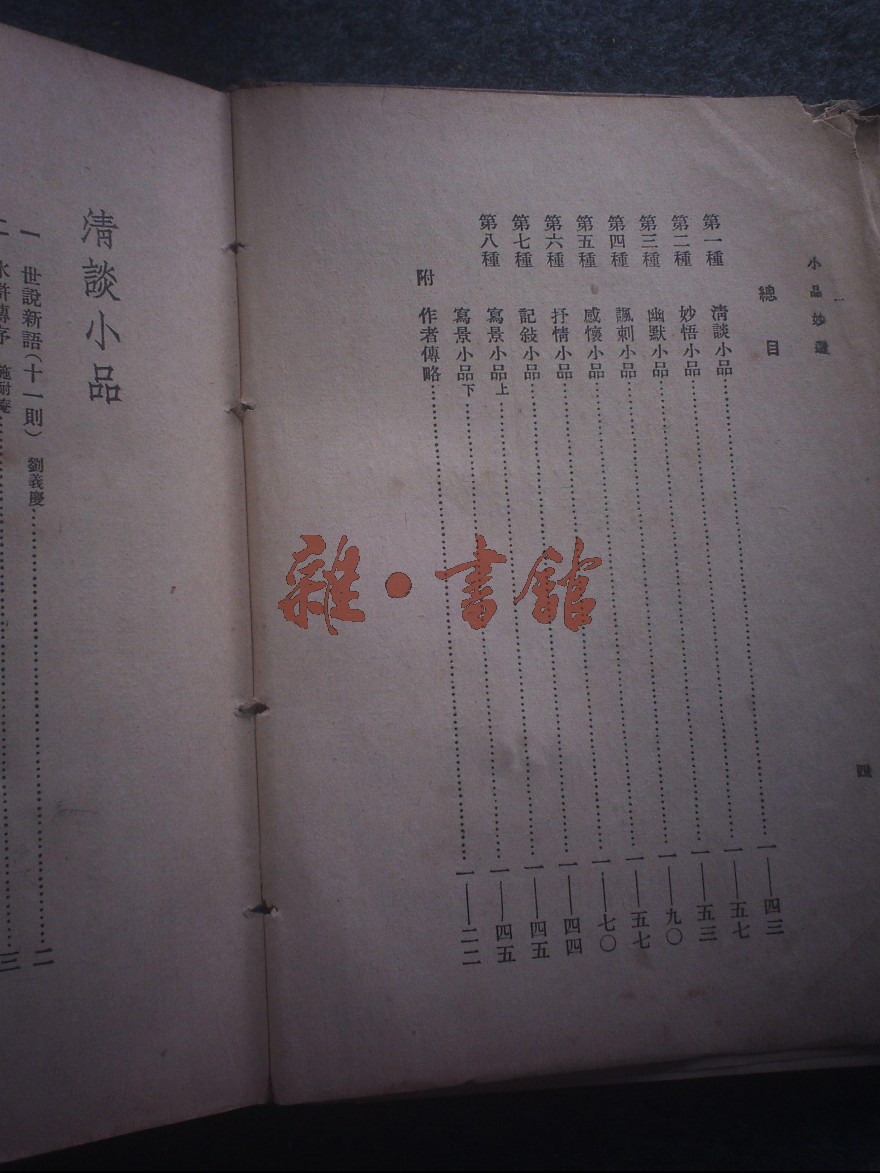 小品妙選
四
總目
第一種 清談小品……一——四三
第二種 妙悟小品……一——五七
第三種 幽默小品……一——五三
第四種 諷刺小品……一——九〇
第五種 感懷小品……一——五七
第六種 抒情小品……一——七〇
第七種 記敍小品……一——四四
第八種 寫景小品上……一——四五
寫景小品下……一——四五
附 作者傳略……一——二二
清談小品
一 世說新語(十一則) 劉義慶……二
二 水滸傳序 施耐庵……三
雜·書館